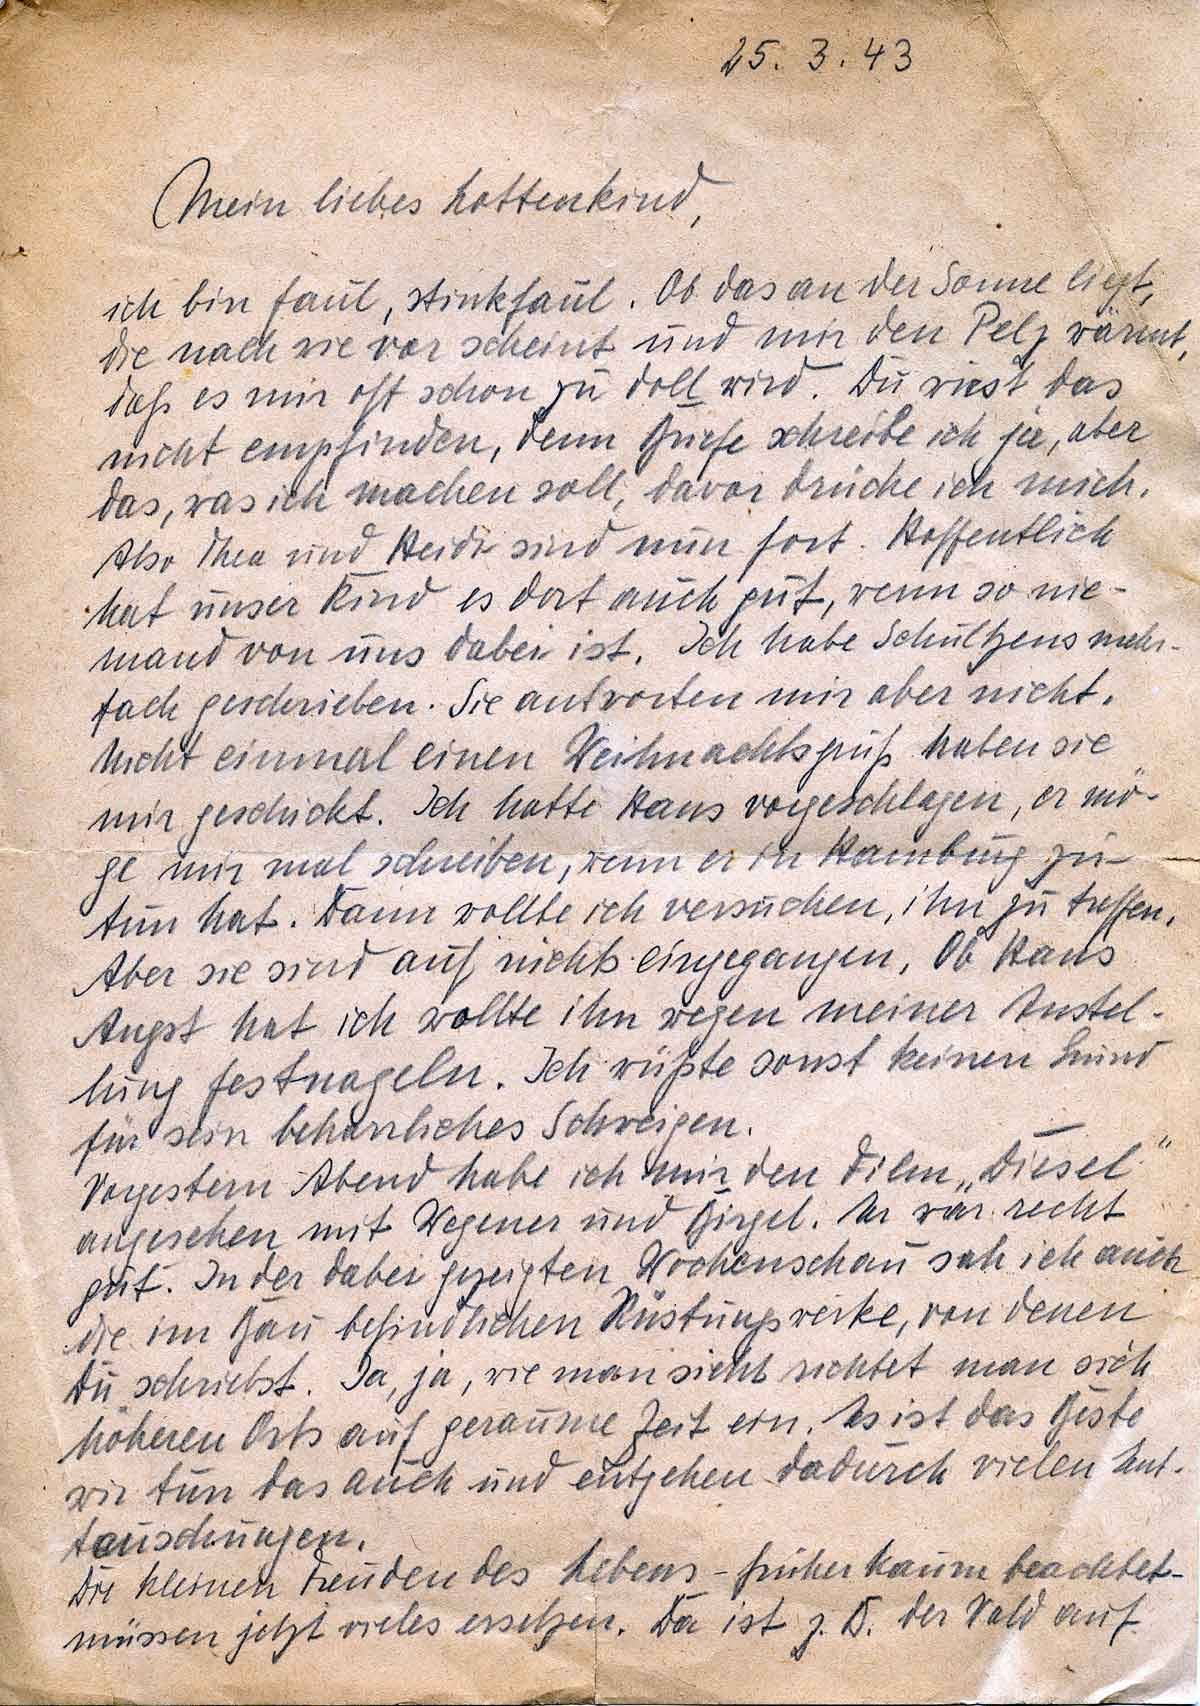 25. 3. 43
Mein liebes Lottenkind,
ich bin faul, stinkfaul. Ob das an der Sonne liegt,
die nach wie vor scheint und mir den Pelz wärmt,
daß es mir oft schon zu doll wird. Du wirst das
nicht empfinden, denn Briefe schreibe ich ja, aber
das, was ich machen soll, davor drücke ich mich.
Also Thea und Heidi sind nun fort. Hoffentlich
hat unser Kind es dort auch gut, wenn so nie-
mand von uns dabei ist. Ich habe Schultzens mehr-
fach geschrieben. Sie antworten mir aber nicht.
Nicht einmal einen Weihnachtsgruß haben sie
mir geschickt. Ich hatte Hans vorgeschlagen, er mö-
ge mir mal schreiben, wenn er in Hamburg zu
tun hat. Dann wollte ich versuchen, ihn zu treffen.
Aber sie sind auf nichts eingegangen. Ob Hans
Angst hat ich wollte ihn wegen meiner Anstel-
lung festnageln. Ich wüßte sonst keinen Grund
für sein beharrliches Schweigen.
Vorgestern Abend habe ich mir den Film „Diesel“
angesehen mit Wegener und Birgel. Er war recht
gut. In der dabei gezeigten Wochenschau sah ich auch
die im Bau befindlichen Rüstungswerke, von denen
Du schriebst. Ja, ja, wie man sieht richtet man sich
höheren Orts auf geraume Zeit ein. Es ist das Beste
wir tun das auch und entgehen dadurch vielen Ent-
täuschungen.
Die kleinen Freuden des Lebens - früher kaum beachtet-
müssen jetzt vieles ersetzen. Da ist z. B. der Wald auf